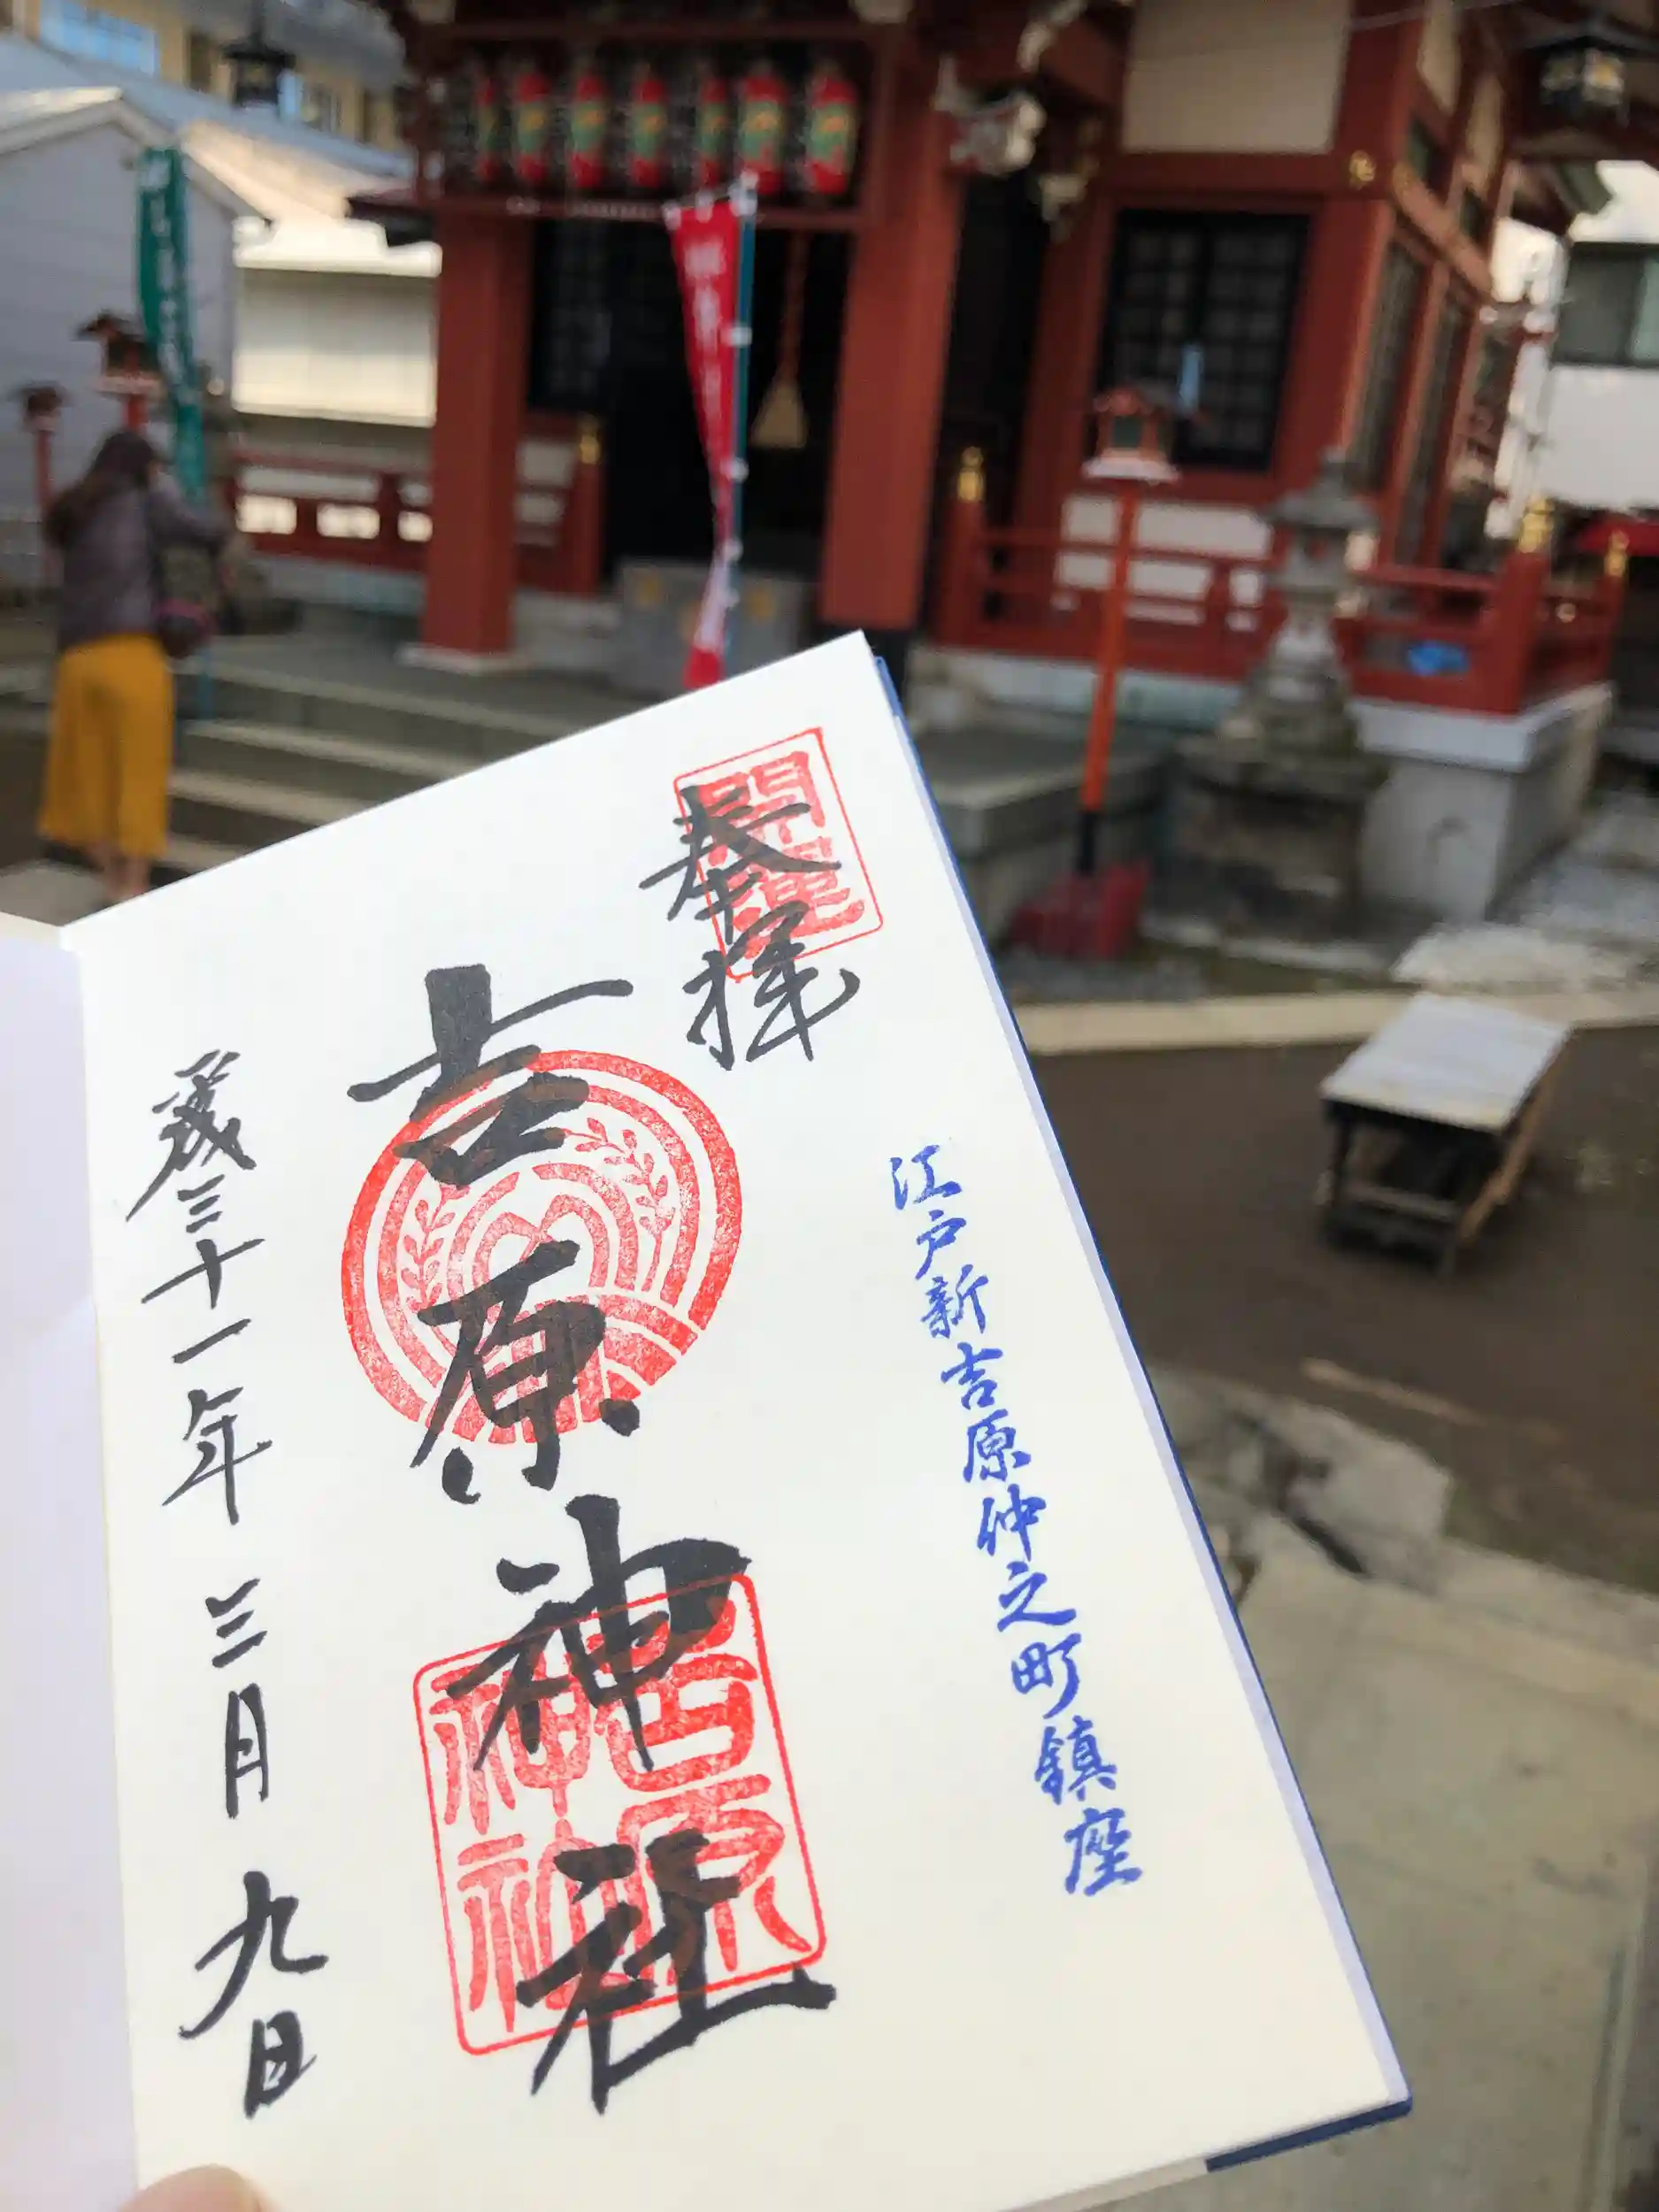 江戸新吉原仲之町鎮座
開運
奉拝
吉原神社
吉原
神社
平成三十一年三月九日